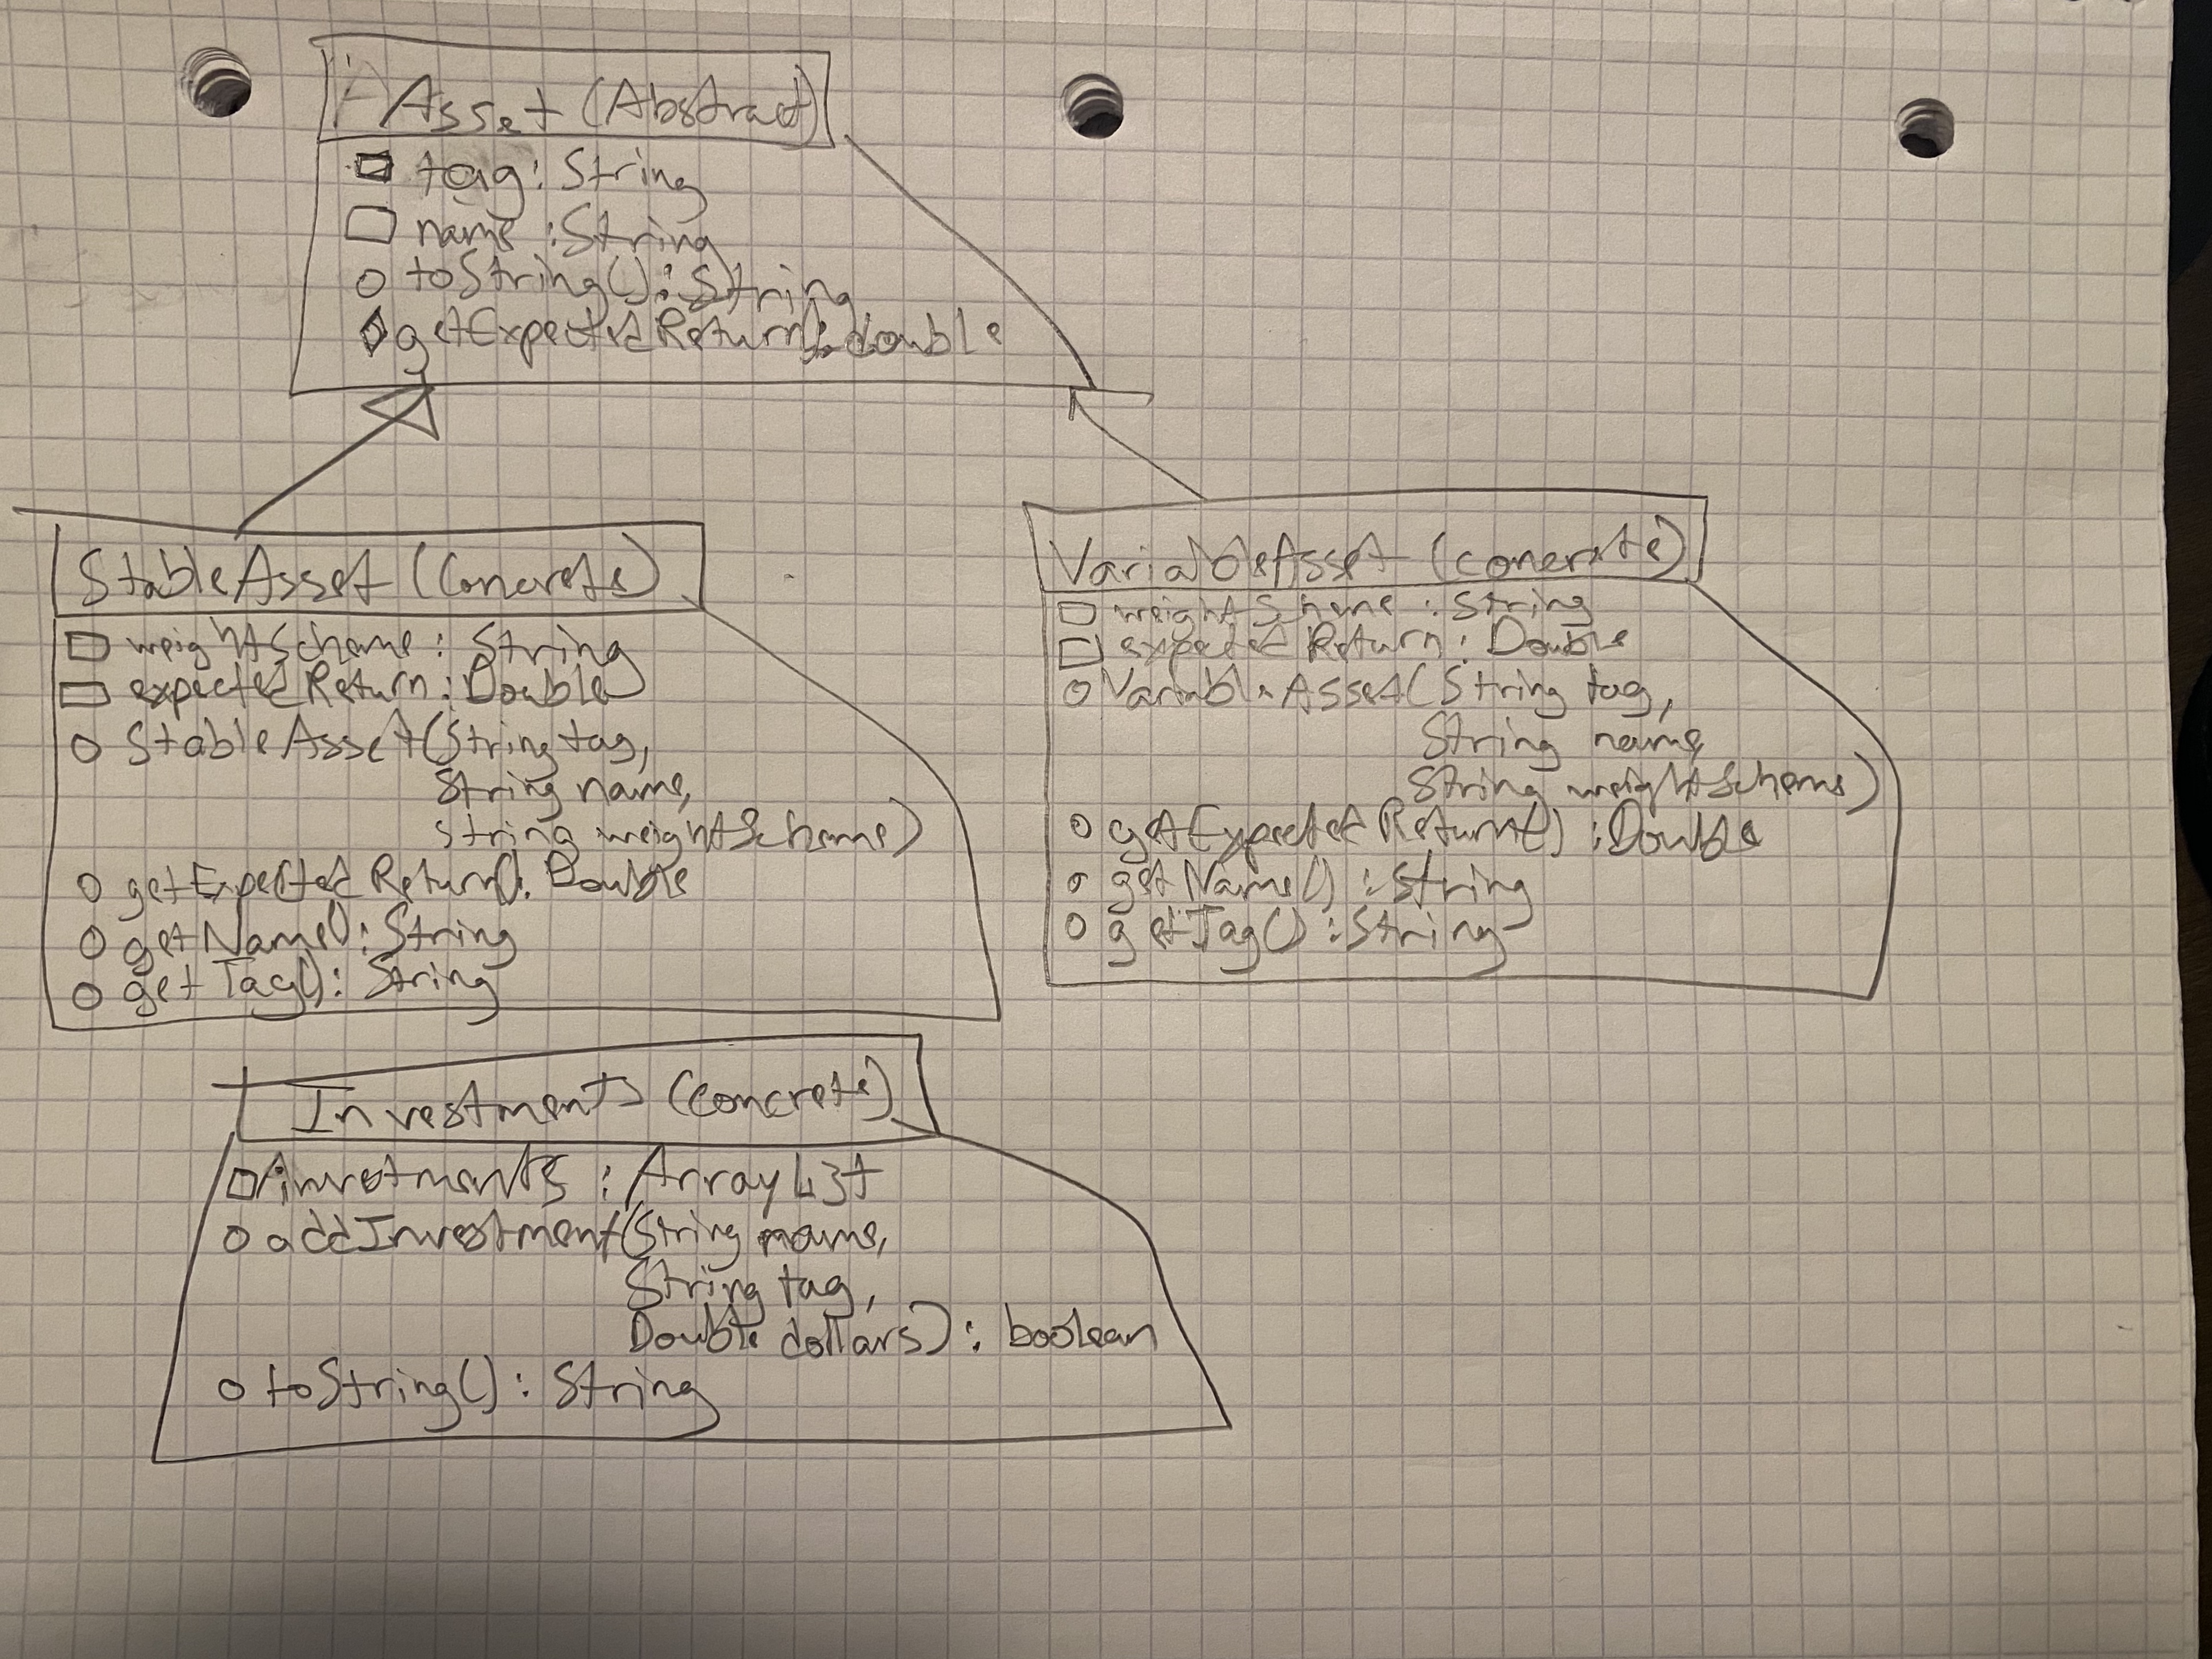 Asset (Abstract)
tag: String
name: String
toString(): String
getExpectedReturn(): double
StableAsset (Concrete)
weightScheme: String
expectedReturn: Double
StableAsset(String tag,
String name,
String weightScheme)
getExpectedReturn(): Double
getName(): String
getTag(): String
VariableAsset (concrete)
weightScheme: String
expectedReturn: Double
VariableAsset(String tag,
String name,
String weightScheme)
getExpectedReturn(): Double
getName(): String
getTag(): String
Investments (concrete)
investments: ArrayList
addInvestment(String name,
String tag,
Double dollars): boolean
toString(): String